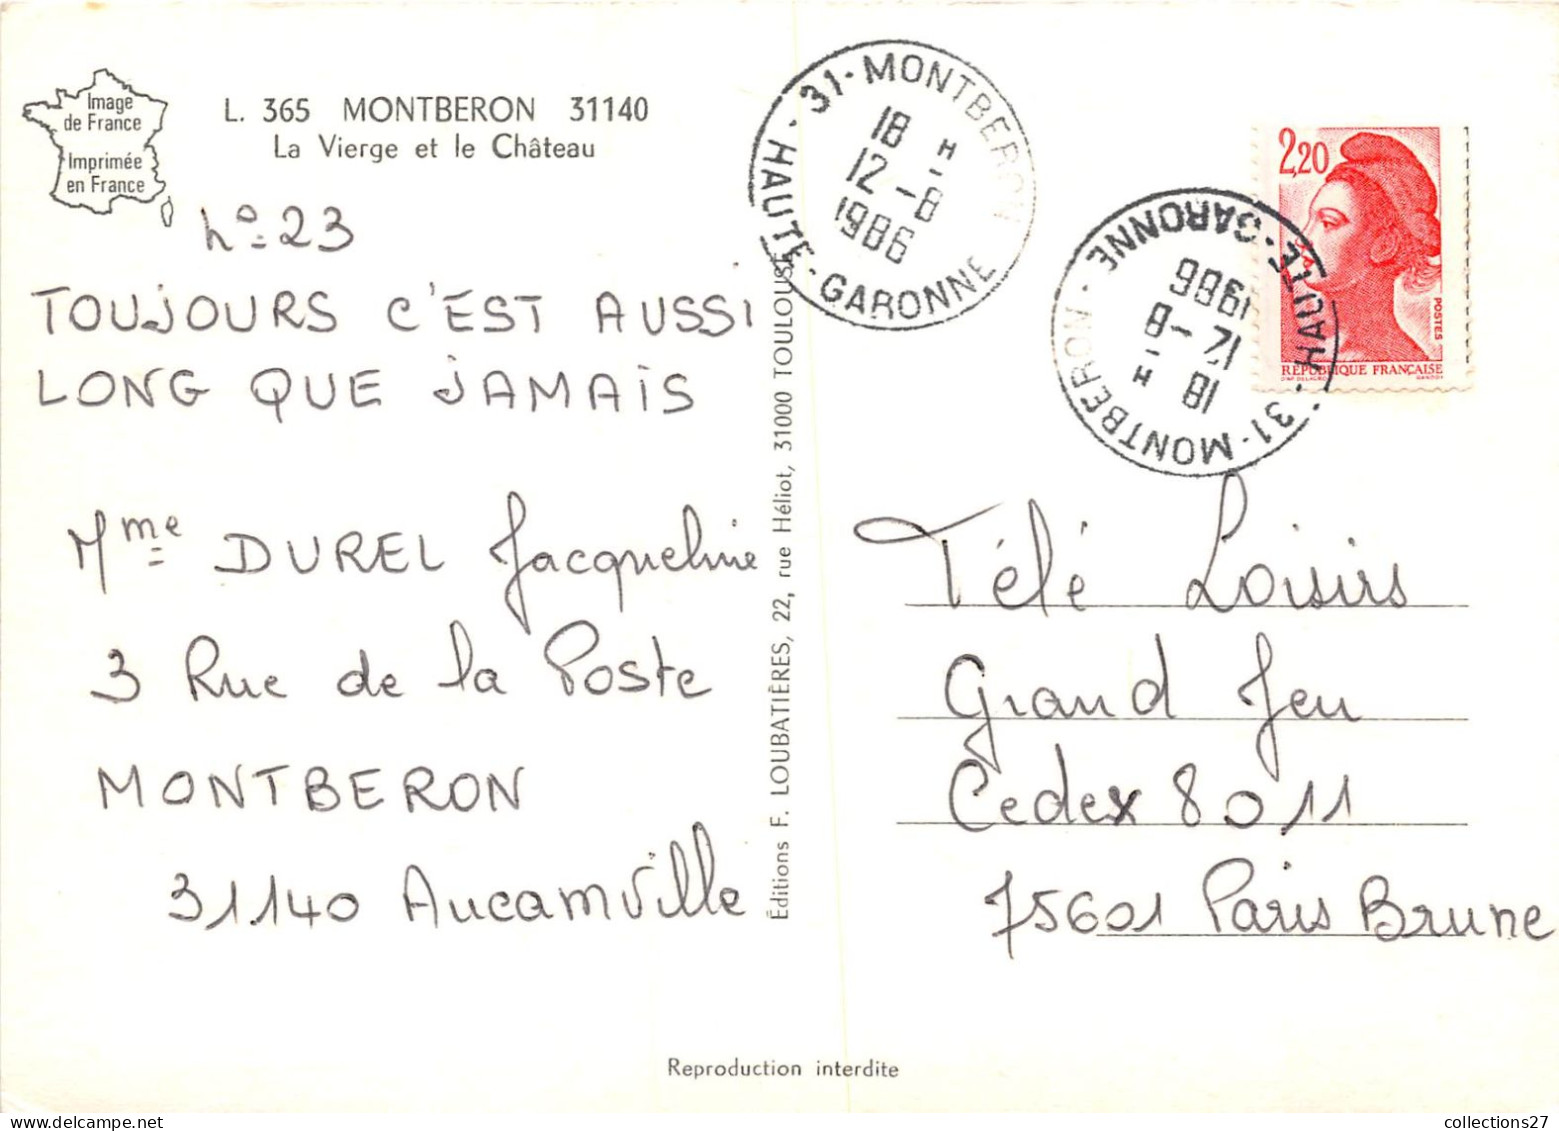 Image
de France
Imprimée
en France
L. 365 MONTBERON 31140
La Vierge et le Château
n° 23
TOUJOURS C'EST AUSSI
LONG QUE JAMAIS
Mme DUREL Jacqueline
3 Rue de la Poste
MONTBERON
31140 Aucamville
Éditions F. LOUBATIÈRES, 22, rue Héliot, 31000 TOULOUSE
31-MONTBERON
18 H
12-8
1986
HAUTE-GARONNE
31-MONTBERON
18 H
12-8
1986
HAUTE-GARONNE
2,20
POSTES
RÉPUBLIQUE FRANÇAISE
Télé Loisirs
Grand Jeu
Cedex 8011
75601 Paris Brune
Reproduction interdite
collections27